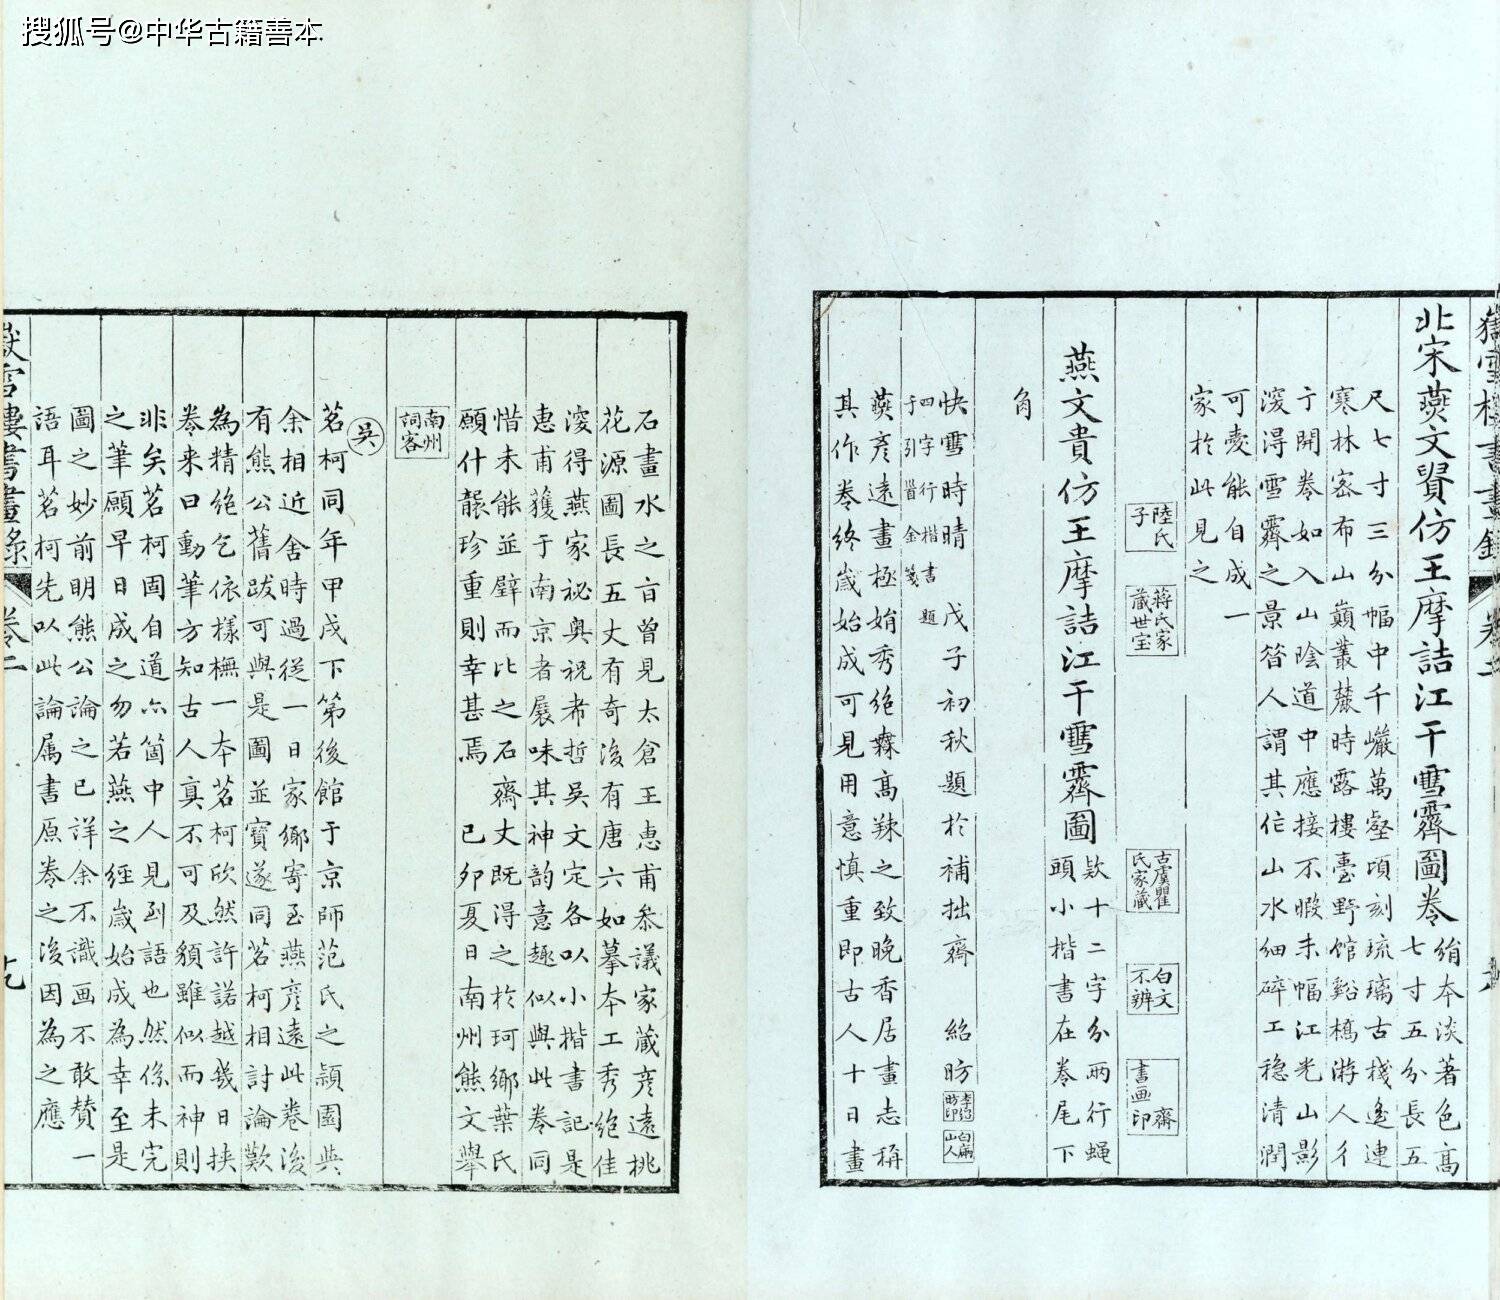 搜狐号@中华古籍善本
嶽雪樓書畫錄 卷二
北宋燕文貴仿王摩詰江干雪霽圖卷
絹本淡著色高
七寸五分長五
尺七寸三分幅中千巖萬壑頃刻琉璃古棧遙連
寒林密布山巔叢麓時露樓臺野館谿橋游人彳
亍開卷如入山陰道中應接不暇末幅江光山影
深得雪霽之景昔人謂其作山水細碎工穩清潤
可愛能自成一
家於此見之
陸氏
子
蔣氏家
藏世宝
古虞瞿
氏家藏
白文
不辨
齋
書画印
燕文貴仿王摩詰江干雪霽圖
款十二字分兩行蠅
頭小楷書在卷尾下
角
快雪時晴 戊子初秋題於補拙齋 紹昉
李紹
昉印
白蘭
山人
四字行楷書題
于引首金箋
燕彥遠畫極娟秀絕無高辣之致晚香居畫志稱
其作卷終歲始成可見用意慎重即古人十日畫
石畫水之旨曾見太倉王惠甫叅議家藏彥遠桃
花源圖長五丈有奇後有唐六如摹本工秀絕佳
深得燕家祕奥祝希哲吳文定各以小楷書記是
惠甫獲于南京者展味其神韵意趣似與此卷同
惜未能並璧而比之石齋丈既得之於珂鄉葉氏
願什襲珍重則幸甚焉 己卯夏日南州熊文舉
南州
詞客
吳
茗柯同年甲戌下第後館于京師范氏之穎園與
余相近舍時過從一日家鄉寄至燕彥遠此卷後
有熊公舊跋可與是圖並寶遂同茗柯相討論歎
為精絕乞依樣橅一本茗柯欣然許諾越幾日挾
卷来曰動筆方知古人真不可及貌雖似而神則
非矣茗柯固自道六箇中人見到語也然係未完
之筆願早日成之勿若燕之經歲始成為幸至是
圖之妙前明熊公論之已詳余不識画不敢贊一
語耳茗柯先以此論属書原卷之後因為之應
嶽雪樓書畫錄 卷二